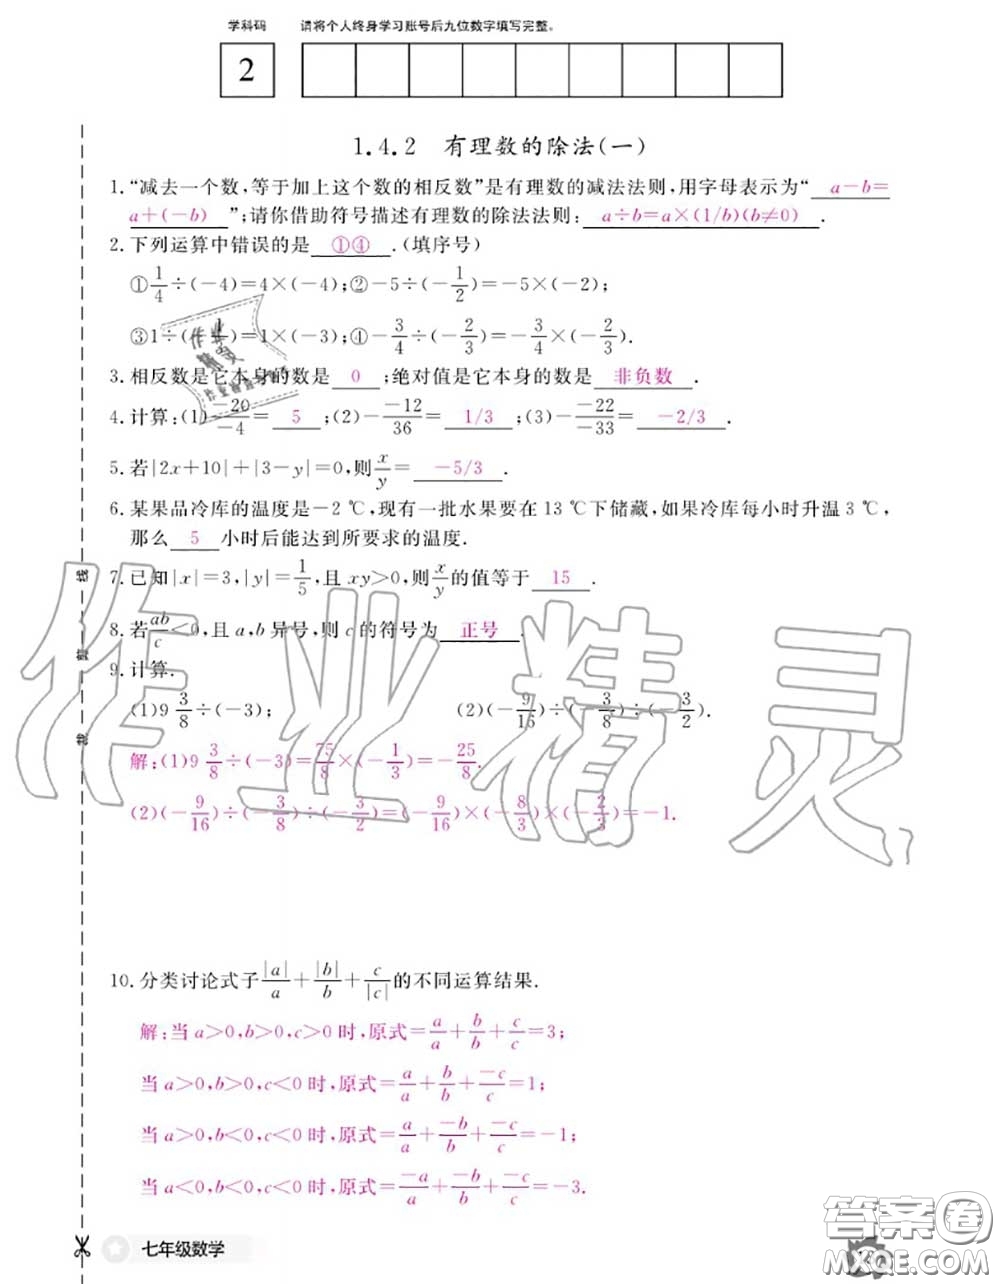 学科码 请将个人终身学习账号后九位数字填写完整。
2
1.4.2 有理数的除法(一)
1.“减去一个数,等于加上这个数的相反数”是有理数的减法法则,用字母表示为“ a-b=
a+(-b) ”;请你借助符号描述有理数的除法法则: a÷b=a×(1/b)(b≠0) .
2.下列运算中错误的是 ①④ .(填序号)
①1/4÷(-4)=4×(-4);②-5÷(-1/2)=-5×(-2);
③1÷(-1/3)=1×(-3);④-3/4÷(-2/3)=-3/4×(-2/3).
3.相反数是它本身的数是 0 ;绝对值是它本身的数是 非负数 .
4.计算:(1)-20/-4= 5 ;(2)--12/36= 1/3 ;(3)--22/-33= -2/3 .
5.若|2x+10|+|3-y|=0,则x/y= -5/3 .
6.某果品冷库的温度是-2 ℃,现有一批水果要在 13 ℃下储藏,如果冷库每小时升温 3 ℃,
那么 5 小时后能达到所要求的温度.
7.已知|x|=3,|y|=1/5,且 xy>0,则x/y的值等于 15 .
8.若ab/c<0,且 a,b 异号,则 c 的符号为 正号 .
9.计算.
(1)9 3/8÷(-3); (2)(-9/16)÷(-3/8)÷(-3/2).
解:(1)9 3/8÷(-3)=75/8×(-1/3)=-25/8.
(2)(-9/16)÷(-3/8)÷(-3/2)=(-9/16)×(-8/3)×(-2/3)=-1.
10.分类讨论式子|a|/a+|b|/b+c/|c|的不同运算结果.
解:当 a>0,b>0,c>0 时,原式=a/a+b/b+c/c=3;
当 a>0,b>0,c<0 时,原式=a/a+b/b+-c/c=1;
当 a>0,b<0,c<0 时,原式=a/a+-b/b+-c/c=-1;
当 a<0,b<0,c<0 时,原式=-a/a+-b/b+-c/c=-3.
线
剪
裁
作业精灵
七年级数学
答案卷
MXQE.COM